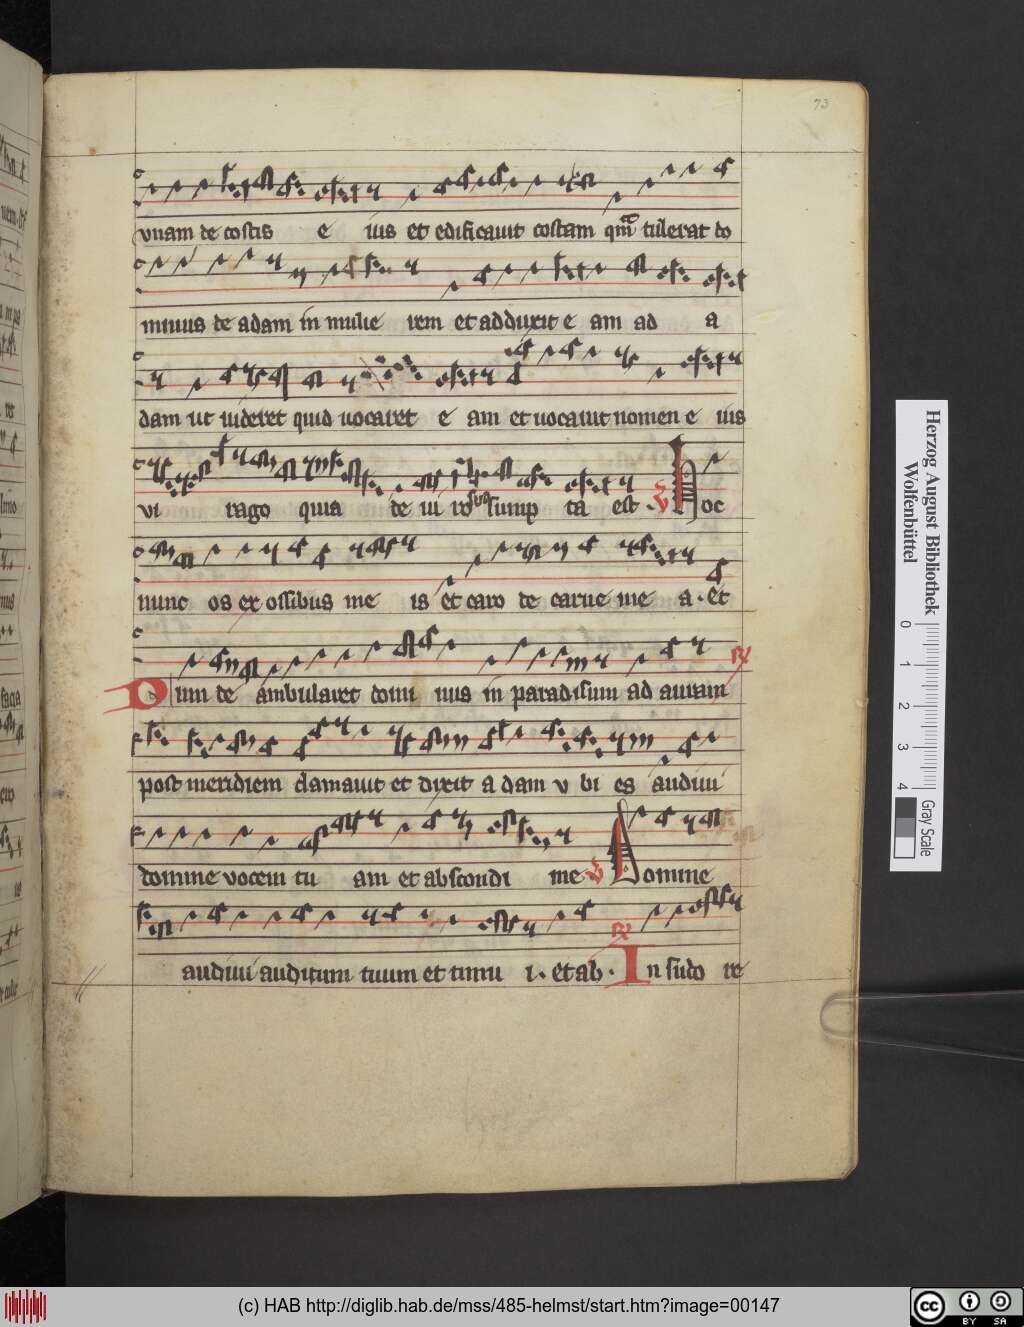 73
vnam de costis e ius et edificauit costam qm̄ tulerat do
minus de adam in mulie rem et adduxit e am ad a
dam ut uideret quid uocaret e am et uocauit nomen e ius
vi rago quia de ui ro sump ta est . V Hoc
nunc os ex ossibus me is et caro de carne me a . et
Dum de ambularet domi nus in paradisum ad auram R
post meridiem clamauit et dixit a dam v bi es audiui
domine vocem tu am et abscondi me V Domine
audiui auditum tuum et timu i . et ab . R In sudo re
Herzog August Bibliothek
Wolfenbüttel
0 1 2 3 4
Gray Scale
(c) HAB http://diglib.hab.de/mss/485-helmst/start.htm?image=00147
cc BY SA